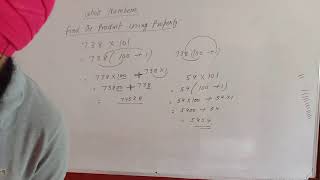 Whole Numbers
Find the Product using Property:
738 × 101
= 738 (100 + 1)
= 738 × 100 + 738 × 1
= 73800 + 738
= 74538
738 (100 + 1)
54 × 101
= 54 (100 + 1)
= 54 × 100 + 54 × 1
= 5400 + 54
= 5454